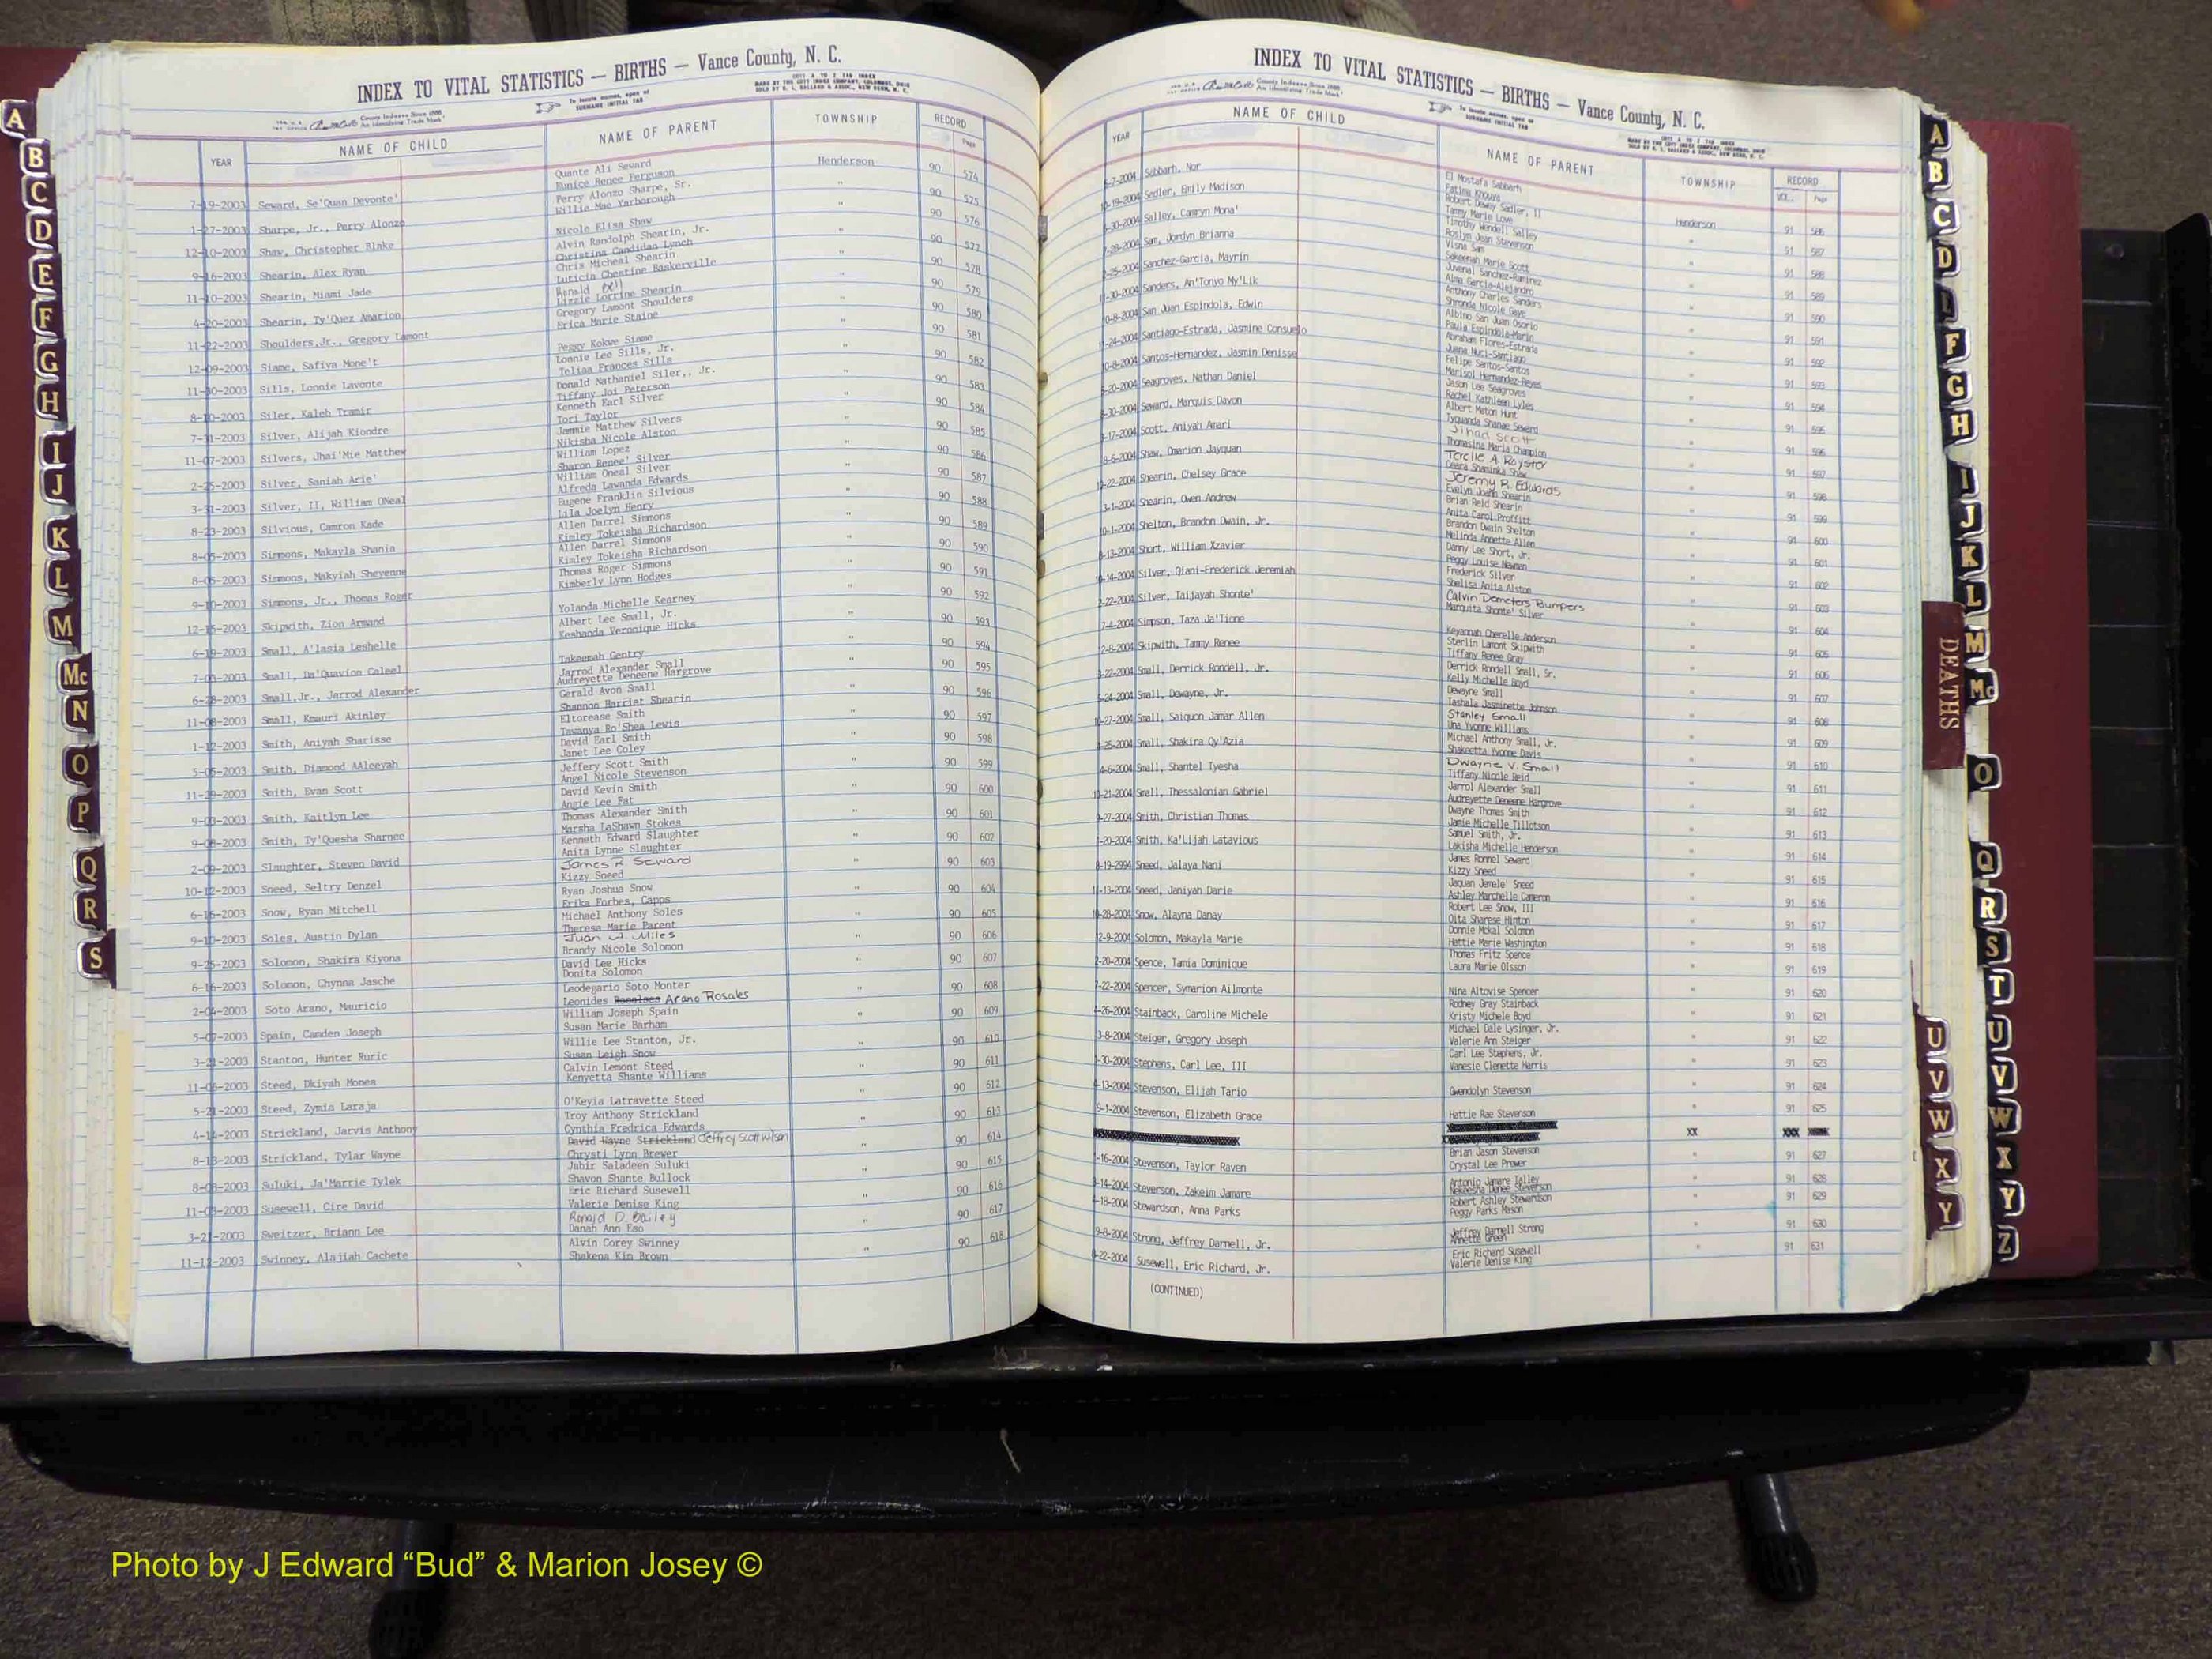 INDEX TO VITAL STATISTICS — BIRTHS — Vance County, N. C.
To locate names, open at
SURNAME INITIAL TAB
County Indexes Since 1888
An Identifying Trade Mark
YEAR NAME OF CHILD NAME OF PARENT TOWNSHIP RECORD
Page
Quante Ali Seward Henderson 90 574
7-19-2003 Seward, Se'Quan Devonte' Eunice Renee Ferguson
Perry Alonzo Sharpe, Sr. " 90 525
1-27-2003 Sharpe, Jr., Perry Alonzo Willie Mae Yarborough
12-10-2003 Shaw, Christopher Blake Nicole Elisa Shaw " 90 576
Alvin Randolph Shearin, Jr. " 90 577
9-16-2003 Shearin, Alex Ryan Christina Candidan Lynch
Chris Micheal Shearin " 90 578
11-10-2003 Shearin, Miami Jade Luticia Chestine Baskerville
Ronald Bell " 90 579
4-20-2003 Shearin, Ty'Quez Amarion Lizzie Lorrine Shearin
Gregory Lamont Shoulders " 90 580
11-22-2003 Shoulders,Jr., Gregory Lamont Erica Marie Staine
12-09-2003 Siame, Safiya Mone't Peggy Kokwe Siame " 90 581
Lonnie Lee Sills, Jr. " 90 582
11-30-2003 Sills, Lonnie Lavonte Telisa Frances Sills
Donald Nathaniel Siler,, Jr. " 90 583
8-10-2003 Siler, Kaleb Tramir Tiffany Joi Peterson
Kenneth Earl Silver " 90 584
7-31-2003 Silver, Alijah Kiondre Tori Taylor
Jammie Matthew Silvers " 90 585
11-07-2003 Silvers, Jhai'Mie Matthew Nikisha Nicole Alston
William Lopez " 90 586
2-25-2003 Silver, Saniah Arie' Sharon Renee' Silver
William Oneal Silver " 90 587
3-31-2003 Silver, II, William ONeal Alfreda Lawanda Edwards
Eugene Franklin Silvious " 90 588
8-23-2003 Silvious, Camron Kade Lila Joelyn Henry
Allen Darrel Simmons " 90 589
8-05-2003 Simmons, Makayla Shania Kimley Tokeisha Richardson
Allen Darrel Simmons " 90 590
8-05-2003 Simmons, Makyiah Sheyenne Kimley Tokeisha Richardson
Thomas Roger Simmons " 90 591
9-10-2003 Simmons, Jr., Thomas Roger Kimberly Lynn Hodges
12-15-2003 Skipwith, Zion Armand Yolanda Michelle Kearney " 90 592
Albert Lee Small, Jr. " 90 593
6-19-2003 Small, A'lasia Leshelle Keshanda Veronique Hicks
7-03-2003 Small, Da'Quavion Caleel Takeemah Gentry " 90 594
Jarrod Alexander Small " 90 595
6-28-2003 Small,Jr., Jarrod Alexander Audreyette Deneene Hargrove
Gerald Avon Small " 90 596
11-08-2003 Small, Kmauri Akinley Shannon Harriet Shearin
Eltorease Smith " 90 597
1-12-2003 Smith, Aniyah Sharisse Tawanya Ro'Shea Lewis
David Earl Smith " 90 598
5-05-2003 Smith, Diamond AAleeyah Janet Lee Coley
Jeffery Scott Smith " 90 599
11-29-2003 Smith, Evan Scott Angel Nicole Stevenson
David Kevin Smith " 90 600
9-03-2003 Smith, Kaitlyn Lee Angie Lee Fat
Thomas Alexander Smith " 90 601
9-08-2003 Smith, Ty'Quesha Sharnee Marsha LaShawn Stokes
Kenneth Edward Slaughter " 90 602
2-09-2003 Slaughter, Steven David Anita Lynne Slaughter
James R. Seward " 90 603
10-12-2003 Sneed, Seltry Denzel Kizzy Sneed
Ryan Joshua Snow " 90 604
6-16-2003 Snow, Ryan Mitchell Erika Forbes, Capps
Michael Anthony Soles " 90 605
9-10-2003 Soles, Austin Dylan Theresa Marie Parent
Juan A. Miles " 90 606
9-25-2003 Solomon, Shakira Kiyona Brandy Nicole Solomon
David Lee Hicks " 90 607
6-16-2003 Solomon, Chynna Jasche Donita Solomon
Leodegario Soto Monter " 90 608
2-04-2003 Soto Arano, Mauricio Leonides Arano Rosales
William Joseph Spain " 90 609
5-07-2003 Spain, Camden Joseph Susan Marie Barham
Willie Lee Stanton, Jr. " 90 610
3-21-2003 Stanton, Hunter Ruric Susan Leigh Snow
Calvin Lemont Steed " 90 611
11-06-2003 Steed, Dkiyah Monea Kenyetta Shante Williams
5-21-2003 Steed, Zymia Laraja O'Keyia Latravette Steed " 90 612
Troy Anthony Strickland " 90 613
4-14-2003 Strickland, Jarvis Anthony Cynthia Fredrica Edwards
David Wayne Strickland Jeffrey Scott Wilson " 90 614
8-13-2003 Strickland, Tylar Wayne Chrysti Lynn Brewer
Jabir Saladeen Suluki " 90 615
8-08-2003 Suluki, Ja'Marrie Tylek Shavon Shante Bullock
Eric Richard Susewell " 90 616
11-03-2003 Susewell, Cire David Valerie Denise King
Ronald D. Bailey " 90 617
3-21-2003 Sweitzer, Briann Lee Danah Ann Eso
Alvin Corey Swinney " 90 618
11-12-2003 Swinney, Alajiah Cachete Shakena Kim Brown
INDEX TO VITAL STATISTICS — BIRTHS — Vance County, N. C.
To locate names, open at
SURNAME INITIAL TAB
County Indexes Since 1888
An Identifying Trade Mark
YEAR NAME OF CHILD NAME OF PARENT TOWNSHIP RECORD
VOL. Page
-7-2004 Sabbarh, Nor El Mostafa Sabbarh Henderson 91 586
Fatima Khouya
10-19-2004 Sadler, Emily Madison Robert Dewey Sadler, II " 91 587
Tammy Marie Love
-30-2004 Salley, Camryn Mona' Timothy Wendell Salley " 91 588
Roslyn Jean Stevenson
-28-2004 Sam, Jordyn Brianna Visna Sam " 91 589
Sakeenah Marie Scott
-25-2004 Sanchez-Garcia, Mayrin Juvenal Sanchez-Ramirez " 91 590
Alma Garcia-Alejandro
11-30-2004 Sanders, An'Tonyo My'Lik Anthony Charles Sanders " 91 591
Shronda Nicole Gaye
10-8-2004 San Juan Espindola, Edwin Albino San Juan Osorio " 91 592
Paula Espindola-Marin
11-24-2004 Santiago-Estrada, Jasmine Consuelo Abraham Flores-Estrada " 91 593
Juana Nuci-Santiago
10-8-2004 Santos-Hernandez, Jasmin Denisse Felipe Santos-Santos " 91 594
Marisol Hernandez-Reyes
-20-2004 Seagroves, Nathan Daniel Jason Lee Seagroves " 91 595
Rachel Kathleen Lyles
-30-2004 Seward, Marquis Davon Albert Maton Hunt " 91 596
Tyquanda Shanae Seward
-17-2004 Scott, Aniyah Amari Jihad Scott " 91 597
Thomasina Maria Champion
-6-2004 Shaw, Omarion Jayquan Terelle A. Royster " 91 598
Deara Shaminka Shaw
10-22-2004 Shearin, Chelsey Grace Jeremy R. Edwards " 91 599
Evelyn Joann Shearin
3-1-2004 Shearin, Owen Andrew Brian Reid Shearin " 91 600
Anita Carol Proffitt
10-1-2004 Shelton, Brandon Dwain, Jr. Brandon Dwain Shelton " 91 601
Melinda Annette Allen
-13-2004 Short, William Xzavier Danny Lee Short, Jr. " 91 602
Peggy Louise Newman
10-14-2004 Silver, Qiani-Frederick Jeremiah Frederick Silver " 91 603
Shelisa Anita Alston
-22-2004 Silver, Taijayah Shonte' Calvin Demeters Bumpers " 91 604
Marquita Shonte' Silver
7-4-2004 Simpson, Taza Ja'Tione Keyannah Cherelle Anderson " 91 605
2-8-2004 Skipwith, Tammy Renee Sterlin Lamont Skipwith " 91 606
Tiffany Renee Gray
-22-2004 Small, Derrick Rondell, Jr. Derrick Rondell Small, Sr. " 91 607
Kelly Michelle Boyd
-24-2004 Small, Dewayne, Jr. Dewayne Small " 91 608
Tashala Jasminette Johnson
10-27-2004 Small, Saiquon Jamar Allen Stanley Small " 91 609
Una Yvonne Williams
-25-2004 Small, Shakira Qy'Azia Michael Anthony Small, Jr. " 91 610
Shakeetta Yvonne Davis
4-6-2004 Small, Shantel Tyesha Dwayne V. Small " 91 611
Tiffany Nicole Reid
10-21-2004 Small, Thessalonian Gabriel Jarrol Alexander Small " 91 612
Audreyette Deneene Hargrove
-27-2004 Smith, Christian Thomas Dwayne Thomas Smith " 91 613
Jamie Michelle Tillotson
-20-2004 Smith, Ka'Lijah Latavious Samuel Smith, Jr. " 91 614
Lakisha Michelle Henderson
-19-2994 Sneed, Jalaya Nani James Ronnel Seward " 91 615
Kizzy Sneed
11-13-2004 Sneed, Janiyah Darie Jaquan Jemele' Sneed " 91 616
Ashley Marchelle Cameron
10-28-2004 Snow, Alayna Danay Robert Lee Snow, III " 91 617
Oita Sharese Hinton
12-9-2004 Solomon, Makayla Marie Donnie Mckal Solomon " 91 618
Hattie Marie Washington
-20-2004 Spence, Tamia Dominique Thomas Fritz Spence " 91 619
Laura Marie Olsson
-22-2004 Spencer, Symarion Ailmonte Nina Altovise Spencer " 91 620
4-26-2004 Stainback, Caroline Michele Rodney Gray Stainback " 91 621
Kristy Michele Boyd
3-8-2004 Steiger, Gregory Joseph Michael Dale Lysinger, Jr. " 91 622
Valerie Ann Steiger
-30-2004 Stephens, Carl Lee, III Carl Lee Stephens, Jr. " 91 623
Vanesie Clenette Harris
-13-2004 Stevenson, Elijah Tario Gwendolyn Stevenson " 91 624
9-1-2004 Stevenson, Elizabeth Grace Hattie Rae Stevenson " 91 625
XX XXX
-16-2004 Stevenson, Taylor Raven Brian Jason Stevenson " 91 627
Crystal Lee Prewer
-14-2004 Steverson, Zakeim Jamare Antonio Jamare Talley " 91 628
Nekeesha Denee Steverson
-18-2004 Stewardson, Anna Parks Robert Ashley Stewardson " 91 629
Peggy Parks Mason
9-8-2004 Strong, Jeffrey Darnell, Jr. Jeffrey Darnell Strong " 91 630
Annette Green
-22-2004 Susewell, Eric Richard, Jr. Eric Richard Susewell " 91 631
Valerie Denise King
(CONTINUED)
A
B
C
D
E
F
G
H
I
J
K
L
M
Mc
N
O
P
Q
R
S
A
B
C
D
F
G
H
I
J
K
L
M
Mc
DEATHS
O
Q
R
S
T
U
V
W
X
Y
Z
U
V
W
X
Y
Photo by J Edward “Bud” & Marion Josey ©